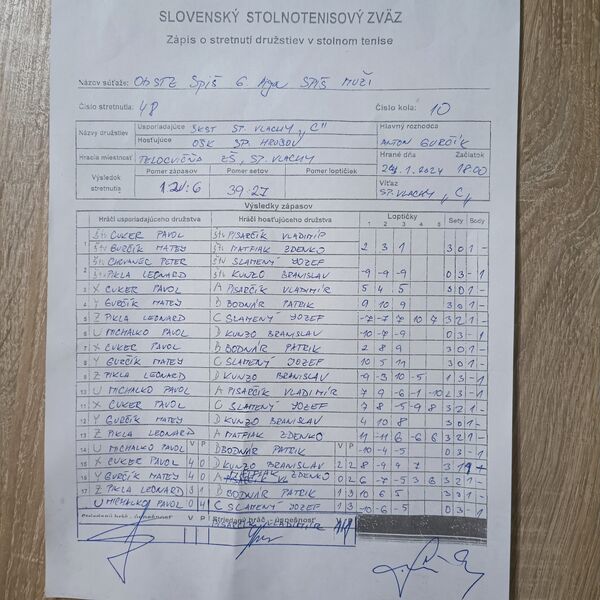 SLOVENSKÝ STOLNOTENISOVÝ ZVÄZ
Zápis o stretnutí družstiev v stolnom tenise
Názov súťaže: ObSTZ Spiš 6 liga SPIŠ MUŽI
Číslo stretnutia: 48 Číslo kola: 10
Názvy družstiev Usporiadajúce SKST SP. VLACHY "C" Hlavný rozhodca
Hosťujúce OŠK SP. HRUŠOV ANTON GURČÍK
Hracia miestnosť TELOCVIČŇA ZŠ, SP. VLACHY Hrané dňa Začiatok
Výsledok stretnutia Pomer zápasov Pomer setov Pomer loptičiek 1.2024 18:00
12:6 39:27 Víťaz SP. VLACHY "C"
Výsledky zápasov
Hráči usporiadajúceho družstva Hráči hosťujúceho družstva Loptičky Sety Body
1 2 3 4 5
CUKER PAVOL PISARČÍK VLADIMÍR
GURČÍK MATEJ MATFIAK ZDENKO 2 3 1 3 0 1 -
CHOVANEC PETER SLAMENÝ JOZEF
PIKLA LEONARD KUNZO BRANISLAV -9 -9 -9 0 3 - 1
X CUKER PAVOL A PISARČÍK VLADIMÍR 5 4 5 3 0 1 -
Y GURČÍK MATEJ B BODNÁR PATRIK 9 10 9 3 0 1 -
Z PIKLA LEONARD C SLAMENÝ JOZEF -7 -7 7 10 7 3 2 1 -
U MICHALKO PAVOL D KUNZO BRANISLAV -10 -7 -9 0 3 - 1
X CUKER PAVOL B BODNÁR PATRIK 2 8 9 3 0 1 -
Y GURČÍK MATEJ C SLAMENÝ JOZEF 10 5 11 3 0 1 -
Z PIKLA LEONARD D KUNZO BRANISLAV -9 -3 10 -5 1 3 - 1
U MICHALKO PAVOL A PISARČÍK VLADIMÍR 7 9 -6 -1 -10 2 3 - 1
X CUKER PAVOL C SLAMENÝ JOZEF 7 8 -5 -9 8 3 2 1 -
Y GURČÍK MATEJ D KUNZO BRANISLAV 4 10 8 3 0 1 -
Z PIKLA LEONARD A MATFIAK ZDENKO 11 -11 6 -6 6 3 2 1 -
U MICHALKO PAVOL V P B BODNÁR PATRIK V P -10 -4 -5 0 3 - 1
X CUKER PAVOL 4 0 D KUNZO BRANISLAV 2 2 8 -9 9 7 3 1
Y GURČÍK MATEJ 4 0 ZDENKO 0 2 6 -7 -5 3 6 3 2 1 -
Z PIKLA LEONARD 3 1 B BODNÁR PATRIK 1 3 10 6 5 3 0 1 -
U MICHALKO PAVOL 0 4 C SLAMENÝ JOZEF 1 3 -10 -6 -5 0 3 - 1
Striedajúci hráč - úspešnosť V P Striedajúci hráč - úspešnosť
VLADIMÍR